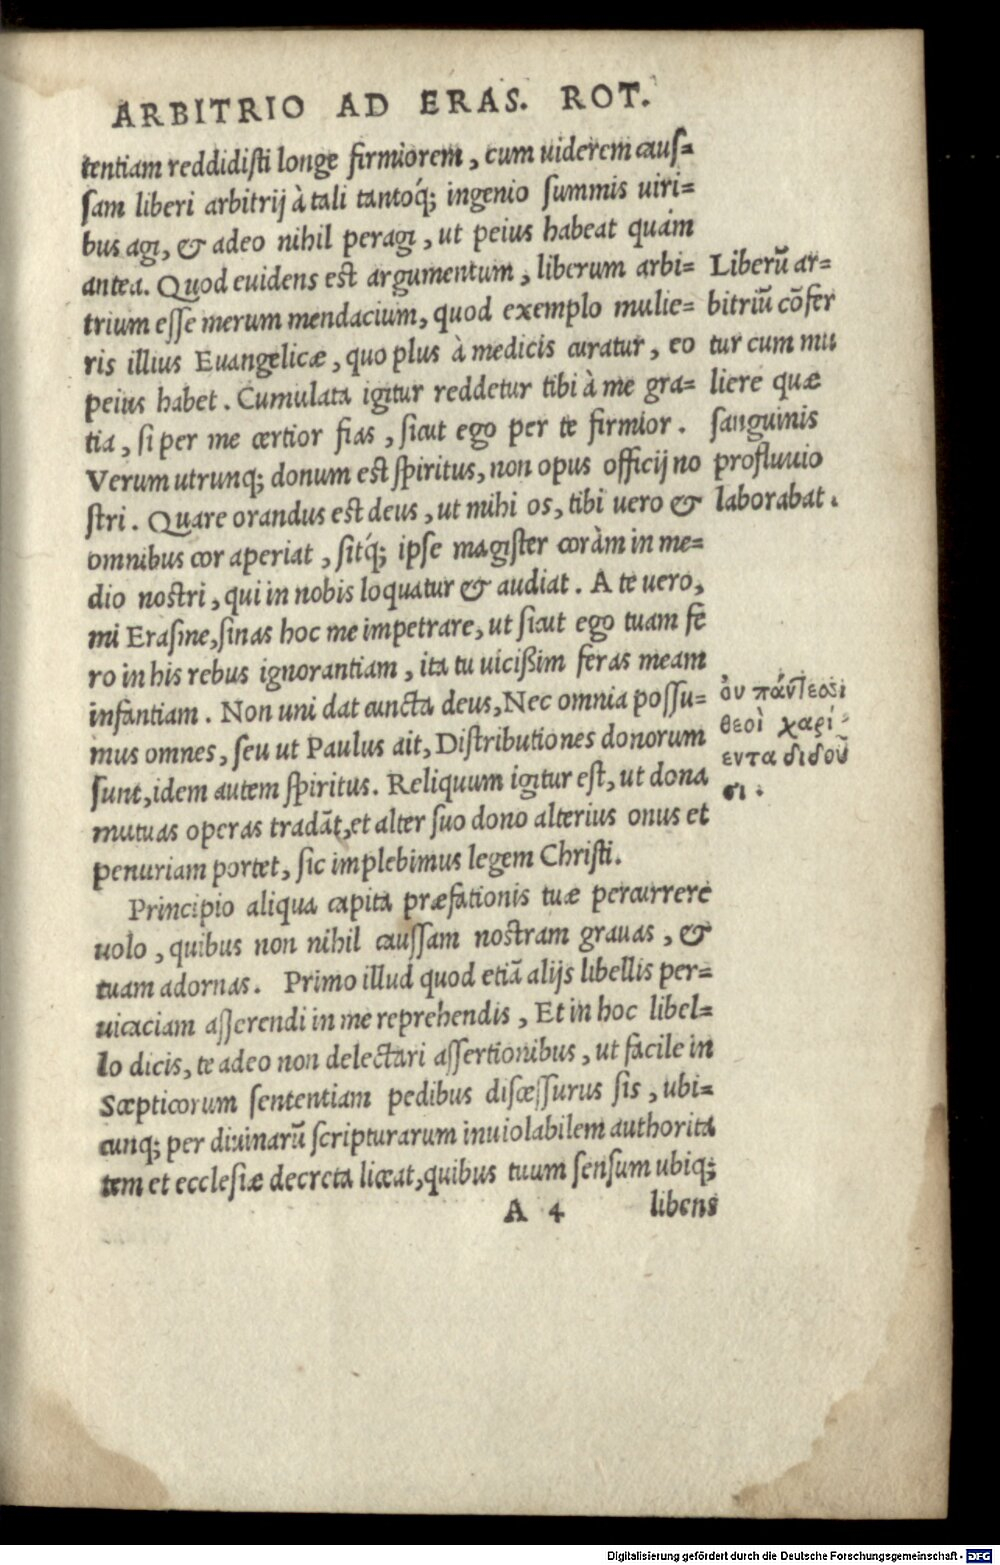 ARBITRIO AD ERAS. ROT.
tentiam reddidisti longe firmiorem, cum uiderem caus=
sam liberi arbitrij à tali tantoq́; ingenio summis uiri=
bus agi, & adeo nihil peragi, ut peius habeat quám
antea. Quod euidens est argumentum, liberum arbi=
trium esse merum mendacium, quod exemplo mulie=
ris illius Euangelicæ, quo plus à medicis curatur, eo
peius habet. Cumulata igitur reddetur tibi à me gra=
tia, si per me certior fias, sicut ego per te firmior.
Verum utrunq; donum est spiritus, non opus officij no
stri. Quare orandus est deus, ut mihi os, tibi uero &
omnibus cor aperiat, sitq́; ipse magister coràm in me=
dio nostri, qui in nobis loquatur & audiat. A te uero,
mi Erasme, sinas hoc me impetrare, ut sicut ego tuam fe
ro in his rebus ignorantiam, ita tu uicißim feras meam
infantiam. Non uni dat cuncta deus, Nec omnia possu=
mus omnes, seu ut Paulus ait, Distributiones donorum
sunt, idem autem spiritus. Reliquum igitur est, ut dona
mutuas operas tradāt, et alter suo dono alterius onus et
penuriam portet, sic implebimus legem Christi.
Principio aliqua capita præfationis tuæ percurrere
uolo, quibus non nihil caussam nostram grauas, &
tuam adornas. Primo illud quod etiā alijs libellis per=
uicaciam asserendi in me reprehendis, Et in hoc libel=
lo dicis, te adeo non delectari assertionibus, ut facile in
Scepticorum sententiam pedibus discessurus sis, ubi=
cunq; per diuinarū scripturarum inuiolabilem authorita
tem et ecclesiæ decreta liceat, quibus tuum sensum ubiq;
A 4 libens
Liberū ar=
bitriū cōfer
tur cum mu
liere quæ
sanguinis
profluuio
laborabat.
ὀυ πάντεσσι
θεοὶ χαρί-
εντα διδοῦ
σι.
Digitalisierung gefördert durch die Deutsche Forschungsgemeinschaft - DFG